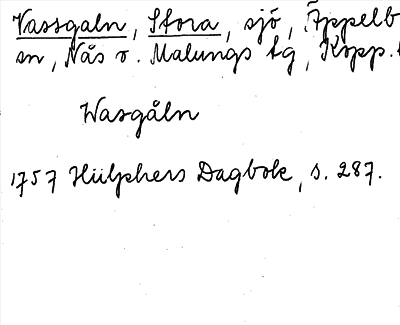 Vassgaln, Stora, sjö, Äppelb
sn, Nås o. Malungs tg, Kopp.
Wasgåln
1757 Hülphers Dagbok, s. 287.